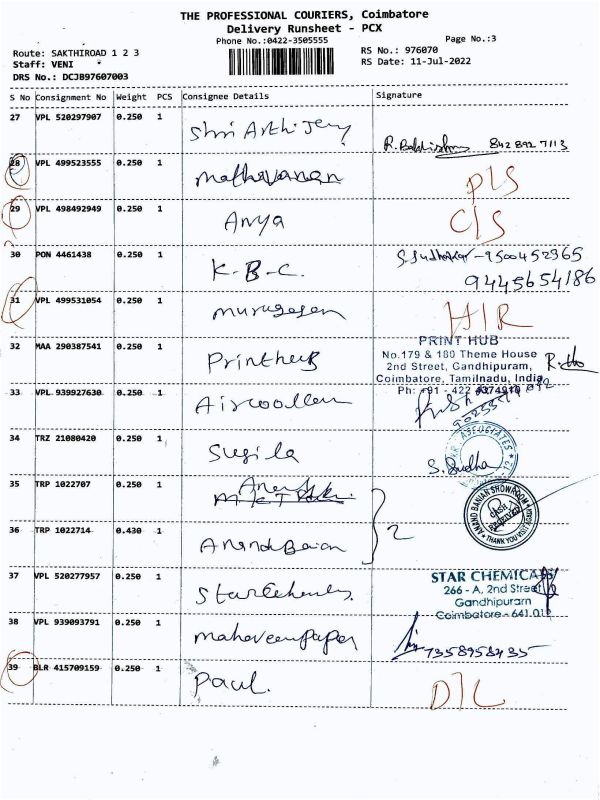 THE PROFESSIONAL COURIERS, Coimbatore
Delivery Runsheet - PCX
Phone No.:0422-3505555
Page No.:3
Route: SAKTHIROAD 1 2 3
RS No.: 976070
Staff: VENI
RS Date: 11-Jul-2022
DRS No.: DCJB97607003
S No Consignment No Weight PCS Consignee Details Signature
27 VPL 520297907 0.250 1 Shri Arthi
28 VPL 499523555 0.250 1 Mathavanan P/S
29 VPL 498492949 0.250 1 Anya C/S
30 PON 4461438 0.250 1 K.B.C. S. Sudhakar -9500452965
9445654186
31 VPL 499531054 0.250 1 murugesen H/R
32 MAA 290387541 0.250 1 Printhub PRINT HUB
No.179 & 180 Theme House
2nd Street, Gandhipuram,
Coimbatore, Tamilnadu, India
Ph: +91 - 422 4374910
33 VPL 939927630 0.250 1
34 TRZ 21080420 0.250 1 Sugila S. Sudha
35 TRP 1022707 0.250 1
ANAND BANIAN SHOWROOM
CASH RECEIVED
THANK YOU VISIT AGAIN
36 TRP 1022714 0.430 1 Anand Banian 2
37 VPL 520277957 0.250 1 Starchemicals STAR CHEMICALS
266 - A, 2nd Street
Gandhipuram
Coimbatore - 641 012
38 VPL 939093791 0.250 1 mahaveerpaper 7358958435
39 BLR 415709159 0.250 1 Paul. D/L